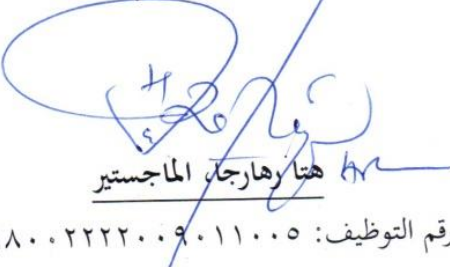 هتا رهارجا، الماجستير
رقم التوظيف: ٨٠٠٢٢٢٢٠٠٩٠١١٠٠٥